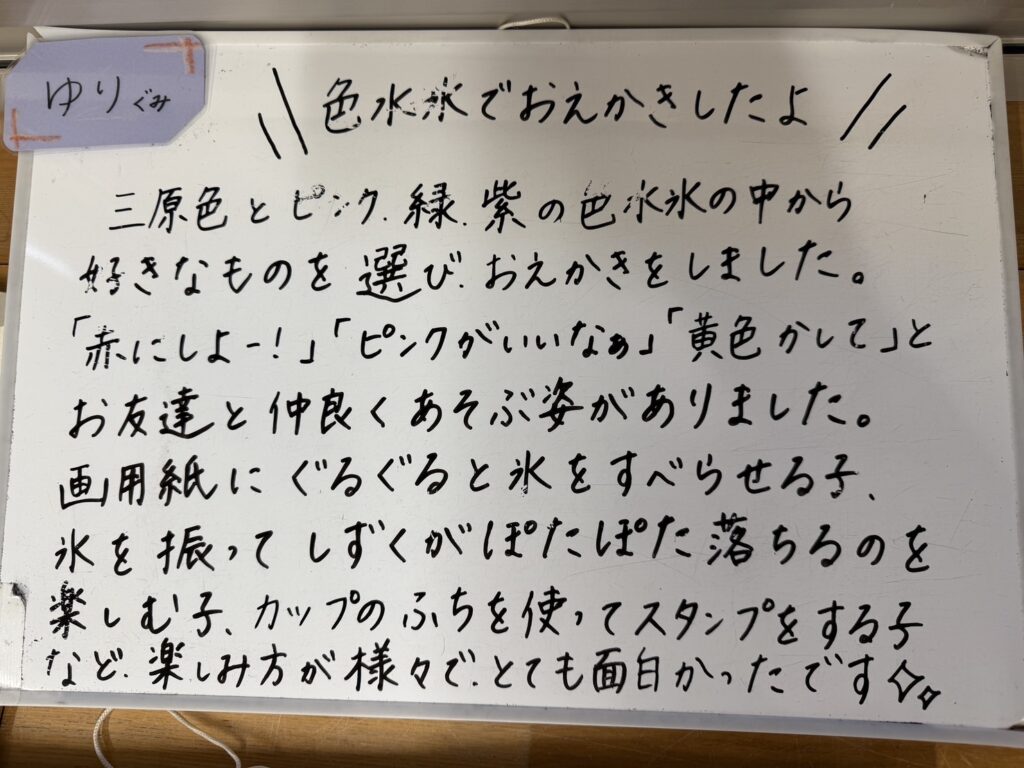 ゆりぐみ
\\ 色水氷でおえかきしたよ //
三原色とピンク、緑、紫の色水氷の中から
好きなものを選び、おえかきをしました。
「赤にしよー!」「ピンクがいいなぁ」「黄色かして」と
お友達と仲良くあそぶ姿がありました。
画用紙にぐるぐると氷をすべらせる子、
氷を振ってしずくがぽたぽた落ちるのを
楽しむ子、カップのふちを使ってスタンプをする子
など、楽しみ方が様々で、とても面白かったです✧✧